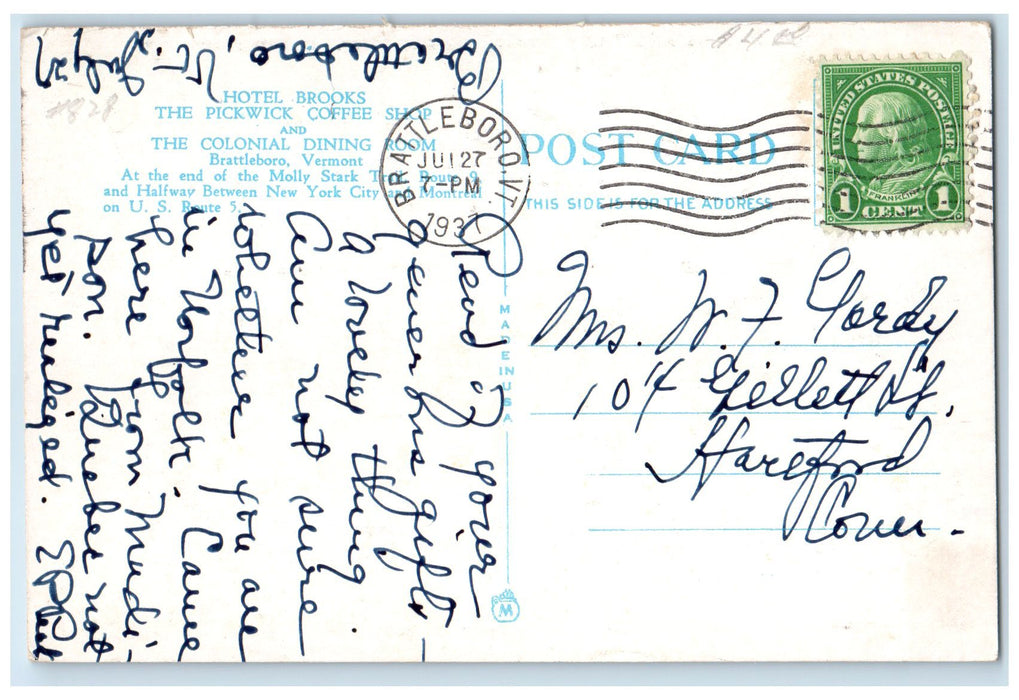 $4.00
#828
HOTEL BROOKS
THE PICKWICK COFFEE SHOP
AND
THE COLONIAL DINING ROOM
Brattleboro, Vermont
At the end of the Molly Stark Route 9
and Halfway Between New York City and Montreal
on U. S. Route 5.
BRATTLEBORO, VT.
JUL 27
7-PM
1937
POST CARD
THIS SIDE IS FOR THE ADDRESS
UNITED STATES POSTAGE
FRANKLIN
1 CENT 1
MADE IN U.S.A.
M
Mrs. W. F. Gordy
104 Gillett St.
Hartford
Conn.
Brattleboro,
Vt.
July 27
Rend your
generous gift –
a lovely thing.
Am not sure
whether you are
in Norfolk. Came
here from Madi-
son. Quebec not
yet realized.